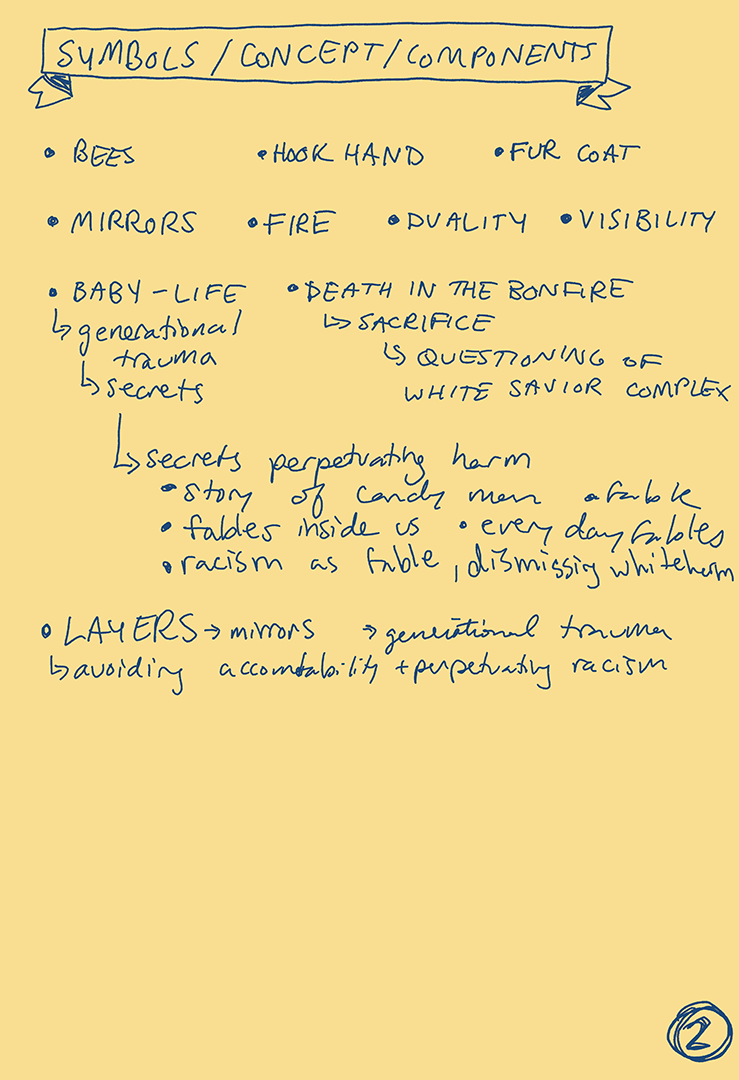 SYMBOLS / CONCEPT / COMPONENTS
• BEES • HOOK HAND • FUR COAT
• MIRRORS • FIRE • DUALITY • VISIBILITY
• BABY - LIFE • DEATH IN THE BONFIRE
↳ generational ↳ SACRIFICE
trauma ↳ QUESTIONING OF
↳ secrets WHITE SAVIOR COMPLEX
↳ secrets perpetuating harm
• story of candy man a fable
• fables inside us • every day fables
• racism as fable, dismissing white harm
• LAYERS → mirrors → generational trauma
↳ avoiding accountability + perpetuating racism
2